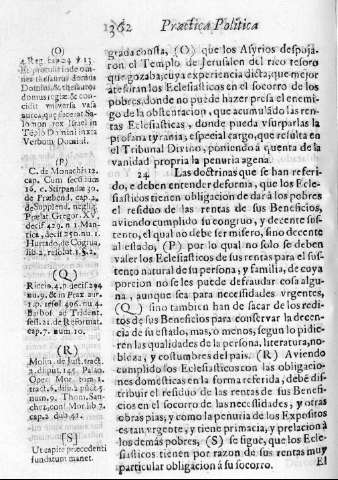 1362 Practica Politica
(O)
4. Reg. cap. 24 ℣ 13
Et protulit inde om-
nes thesauros domus
Domini, & thesauros
domus regiæ & con-
cidit vniversa vasa
aurea, quæ fecerat Sa-
lomon rex Israel in
Tẽplo Domini iuxta
Verbum Domini.
(P)
C. de Monachis 12.
cap. Cum secundum
16. c. Stirpendæ 30.
de Præbend. cap. 2.
de Supplend. neglig.
Prælat. Gregor. XV.
decif. 429. n. 1 Man-
tica, decif 250. nu. 1
Hurtado, de Congrua,
lib. 2. resolut. 1. §. 2.
(Q)
Riccio, 4. p. decif 294
nu. 9. & in Prax. aur.
1. p. resol 496. nu. 4
Barbos. ad Trident.
sess. 21. de Reformat.
cap. 7. num. 10.
(R)
Molin. de Just. tract.
2. disput. 145. Palao,
Oper. Mor. tom. 2.
tract. 6. disp. 2. pũct. 5
num. 9. Thom. San-
chez, cons. Mor. lib 7.
cap. 2. dub. 41.
[S]
Ut capite præcedenti
fundatum manet.
grada consta, (O) que los Asyrios despoja-
ron el Templo de Jerusalèn del rico tesoro
que gozaba; cuya experiencia dicta, que mejor
atesoran los Eclesiasticos en el socorro de los
pobres, donde no puede hazer presa el enemi-
go de la obstentacion, que acumulado las ren-
tas Eclesiasticas, donde pueda vsurparlas la
profana tyrania; especial cargo, que resulta en
el Tribunal Divino, poniendo à quenta de la
vanidad propria la penuria agena.
24. Las doctrinas que se han referi-
do, e deben entender de forma, que los Ecle-
siasticos tienen obligacion de dar à los pobres
el residuo de las rentas de sus Beneficios,
aviendo cumplido su congruo, y decente sus-
tento, el qual no debe ser misero, sino decente
al estado, (P) por lo qual no solo se deben
valer los Eclesiasticos de sus rentas para el sus-
tento natural de su persona, y familia, de cuya
porcion no se les puede defraudar cosa algu-
na, aunque sea para necessidades vrgentes,
(Q) sino tambien han de sacar de los redi-
tos de sus Beneficios para conservar la decen-
cia de su estado, mas, o menos, segun lo pidie-
ren las qualidades de la persona, literatura, no-
bleza, y costumbres del pais. (R) Aviendo
cumplido los Eclesiasticos con las obligacio-
nes domesticas en la forma referida, debè dis-
tribuir el residuo de las rentas de sus Benefi-
cios en el socorro de las necessidades, y otras
obras pias; y como la penuria de los Expositos
es tan vrgente, y tiene primacia, y prelacion à
los demàs pobres, (S) se sigue, que los Ecle-
siasticos tienen por razon de sus rentas muy
particular obligacion à su socorro.
El